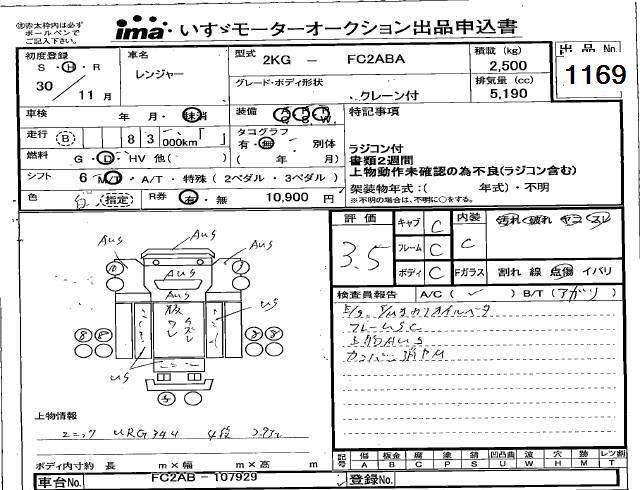 ㊟赤太枠内は必ず
ボールペンで
ご記入下さい。
ima いすゞモーターオークション出品申込書
初度登録
S・H・R
30 11 月
車名
レンジャー
型式 2KG － FC2ABA
グレード・ボディ形状
クレーン付
積載 (kg)
2,500
排気量 (cc)
5,190
出品 No.
1169
車検 年 月・抹消
装備
走行 (B) 83 000km
タコグラフ
有・無 別体
( 年 月)
燃料 G・D・HV 他( )
シフト 6 M/T・A/T・特殊 (2ペダル・3ペダル)
色 白 (指定)
R券 有・無 10,900 円
特記事項
ラジコン付
書類2週間
上物動作未確認の為不良(ラジコン含む)
架装物年式：( 年式)・不明
※不明の場合は、不明に○をする。
評価
3.5
キャブ C
フレーム C
ボディ C
内装 C
汚れ 破れ ヤニ スレ
Fガラス 割れ 線 点傷 イバリ
検査員報告 A/C ( ✓ ) B/T (アガリ)
フレームSC
AUS
AUS
AUS
AUS
US
US
上物情報
ユニック URG344 4段
ボディ内寸約 長 m×幅 m×高 m
記号 傷A 板金B 腐C 塗P 錆S 凹凸曲U 波W 穴H 跡M レンズ割T
車台No. FC2AB － 107929
登録No.